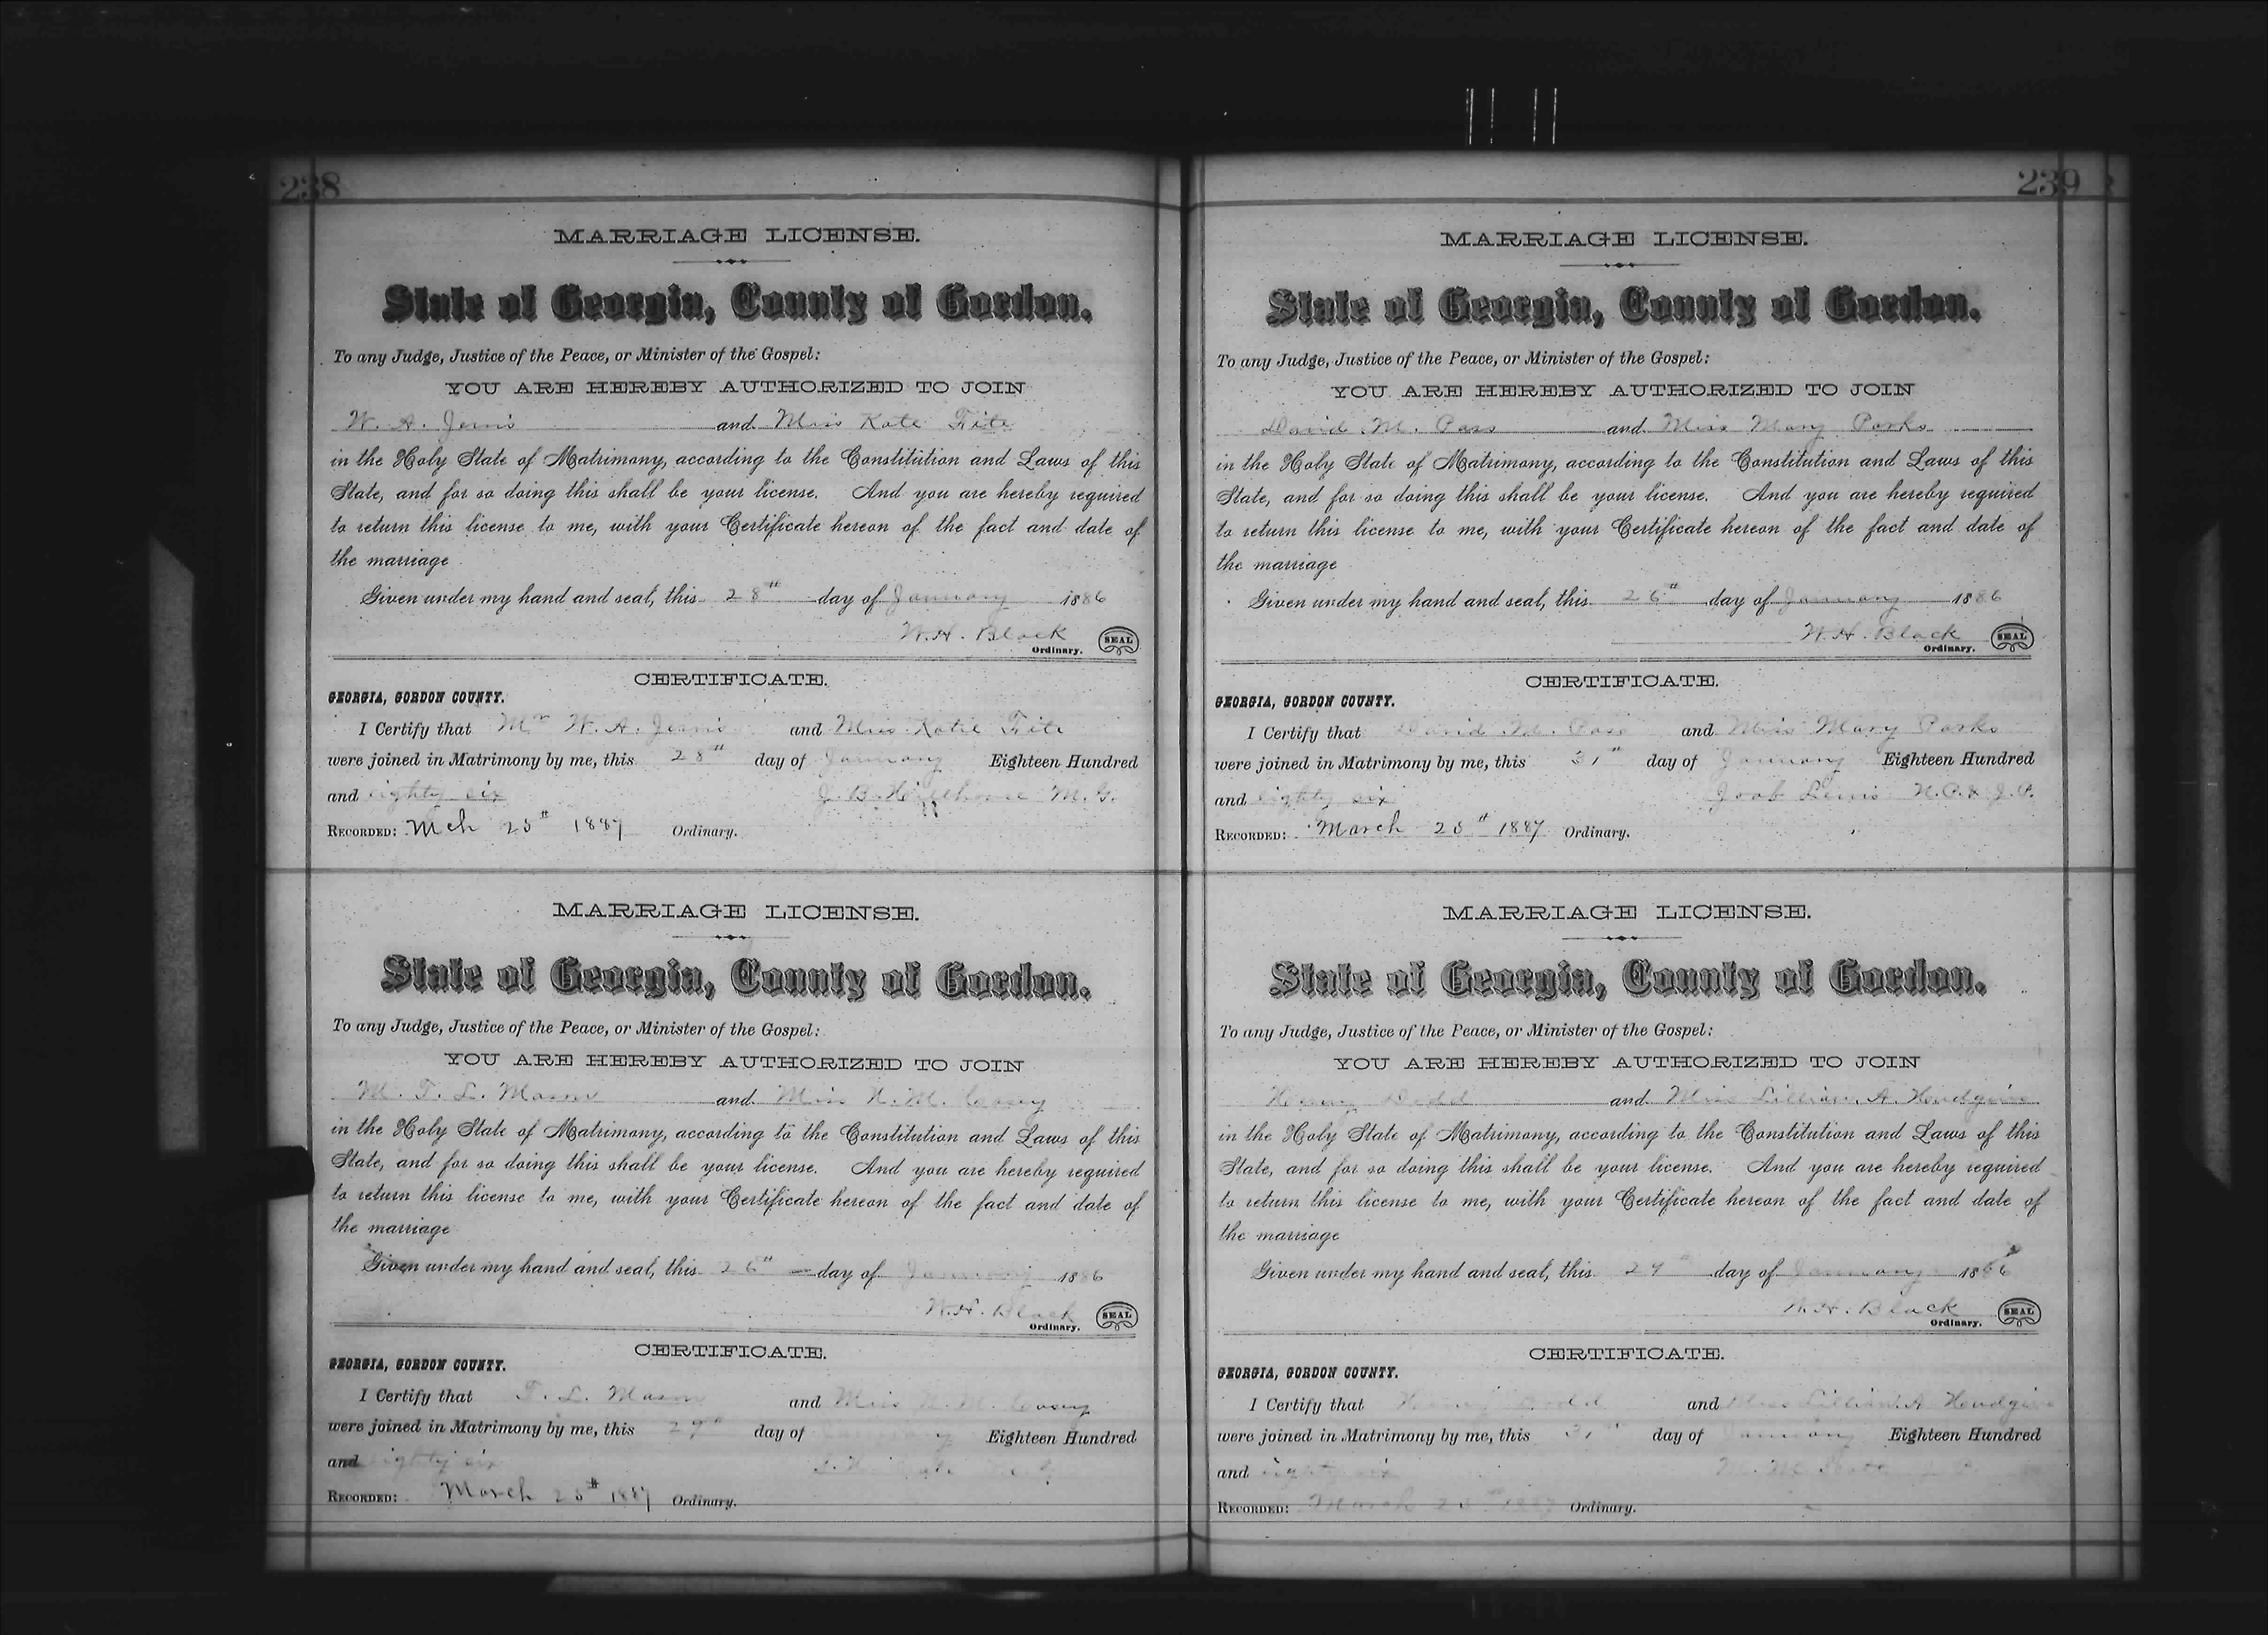 238
MARRIAGE LICENSE.
State of Georgia, County of Gordon.
To any Judge, Justice of the Peace, or Minister of the Gospel:
YOU ARE HEREBY AUTHORIZED TO JOIN
W. A. and Miss Kate Fite
in the Holy State of Matrimony, according to the Constitution and Laws of this
State, and for so doing this shall be your license. And you are hereby required
to return this license to me, with your Certificate hereon of the fact and date of
the marriage
Given under my hand and seal, this 28th day of January 1886
W. H. Black
Ordinary. SEAL
CERTIFICATE.
GEORGIA, GORDON COUNTY.
I Certify that Mr W. A. and Miss Katie Fite
were joined in Matrimony by me, this 28th day of January Eighteen Hundred
and eighty six J. B. Hillhouse M. G.
RECORDED: Mch 25th 1887 Ordinary.
MARRIAGE LICENSE.
State of Georgia, County of Gordon.
To any Judge, Justice of the Peace, or Minister of the Gospel:
YOU ARE HEREBY AUTHORIZED TO JOIN
M. T. L. Mason and Miss N. M. Casey
in the Holy State of Matrimony, according to the Constitution and Laws of this
State, and for so doing this shall be your license. And you are hereby required
to return this license to me, with your Certificate hereon of the fact and date of
the marriage
Given under my hand and seal, this 26th day of January 1886
W. H. Black
Ordinary. SEAL
CERTIFICATE.
GEORGIA, GORDON COUNTY.
I Certify that T. L. Mason and Miss N. M. Casey
were joined in Matrimony by me, this day of Eighteen Hundred
and eighty six
RECORDED: March 25th 1887 Ordinary.
239
MARRIAGE LICENSE.
State of Georgia, County of Gordon.
To any Judge, Justice of the Peace, or Minister of the Gospel:
YOU ARE HEREBY AUTHORIZED TO JOIN
David M. Pass and Miss Mary Parks
in the Holy State of Matrimony, according to the Constitution and Laws of this
State, and for so doing this shall be your license. And you are hereby required
to return this license to me, with your Certificate hereon of the fact and date of
the marriage
Given under my hand and seal, this 26th day of January 1886
W. H. Black
Ordinary. SEAL
CERTIFICATE.
GEORGIA, GORDON COUNTY.
I Certify that David M. Pass and Miss Mary Parks
were joined in Matrimony by me, this 31st day of January Eighteen Hundred
and eighty six Joab Lewis N. P. & J. P.
RECORDED: March 25th 1887 Ordinary.
MARRIAGE LICENSE.
State of Georgia, County of Gordon.
To any Judge, Justice of the Peace, or Minister of the Gospel:
YOU ARE HEREBY AUTHORIZED TO JOIN
Henry and Miss Lillian A. Hudgins
in the Holy State of Matrimony, according to the Constitution and Laws of this
State, and for so doing this shall be your license. And you are hereby required
to return this license to me, with your Certificate hereon of the fact and date of
the marriage
Given under my hand and seal, this day of January 1886
W. H. Black
Ordinary. SEAL
CERTIFICATE.
GEORGIA, GORDON COUNTY.
I Certify that Henry and Miss Lillian A.
were joined in Matrimony by me, this 31st day of January Eighteen Hundred
and eighty six
RECORDED: March 25th 1887 Ordinary.